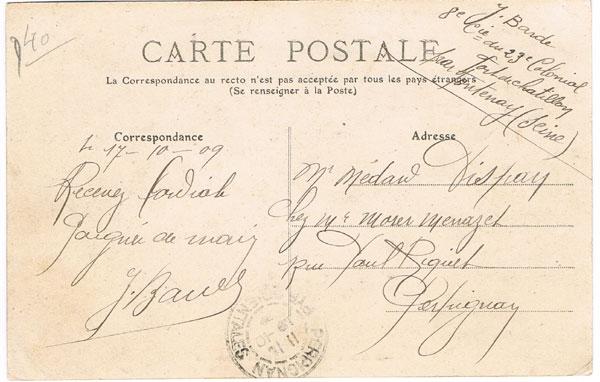 p40
J. Barde
8e Cie du 23e Colonial
Fort de Chatillon
par Fontenay (Seine)
CARTE POSTALE
La Correspondance au recto n'est pas acceptée par tous les pays étrangers
(Se renseigner à la Poste)
Correspondance
Adresse
le 17-10-09
Recevez Cordiale
Poignée de main
J. Barde
Mr Médard Vispay
Chez Mr Moser Menazet
rue Paul Riquet
Perpignan
PERPIGNAN
PYRENEES ORIENTALES